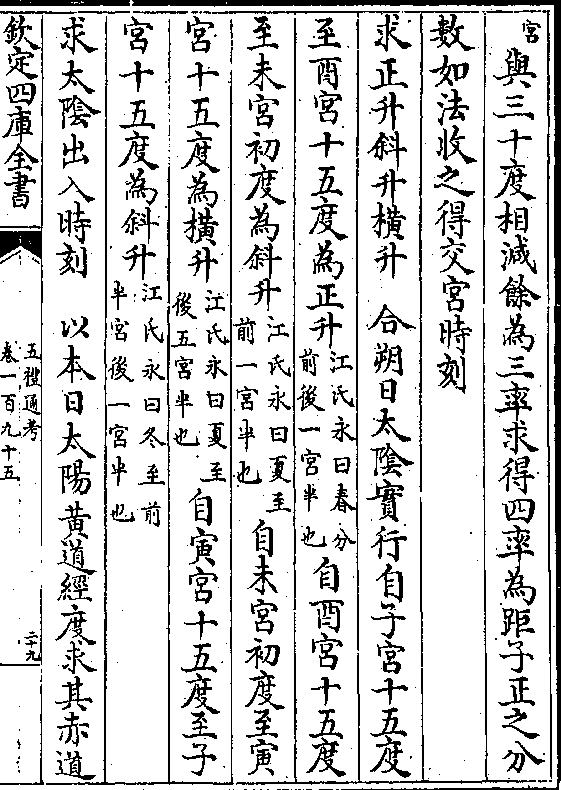 宮與三十度相減餘為三率求得四率為距子正之分
數如法收之得交宮時刻
求正升斜升橫升　合朔日太陰實行自子宮十五度
至酉宮十五度為正升江氏永曰春分前後一宮半也自酉宮十五度
至未宮初度為斜升江氏永曰夏至前一宮半也自未宮初度至寅
宮十五度為橫升江氏永曰夏至後五宮半也自寅宮十五度至子
宮十五度為斜升江氏永曰冬至前半宮後一宮半也
求太陰出入時刻　以本日太陽黃道經度求其赤道
欽定四庫全書
五禮通考
卷一百九十五
二十九